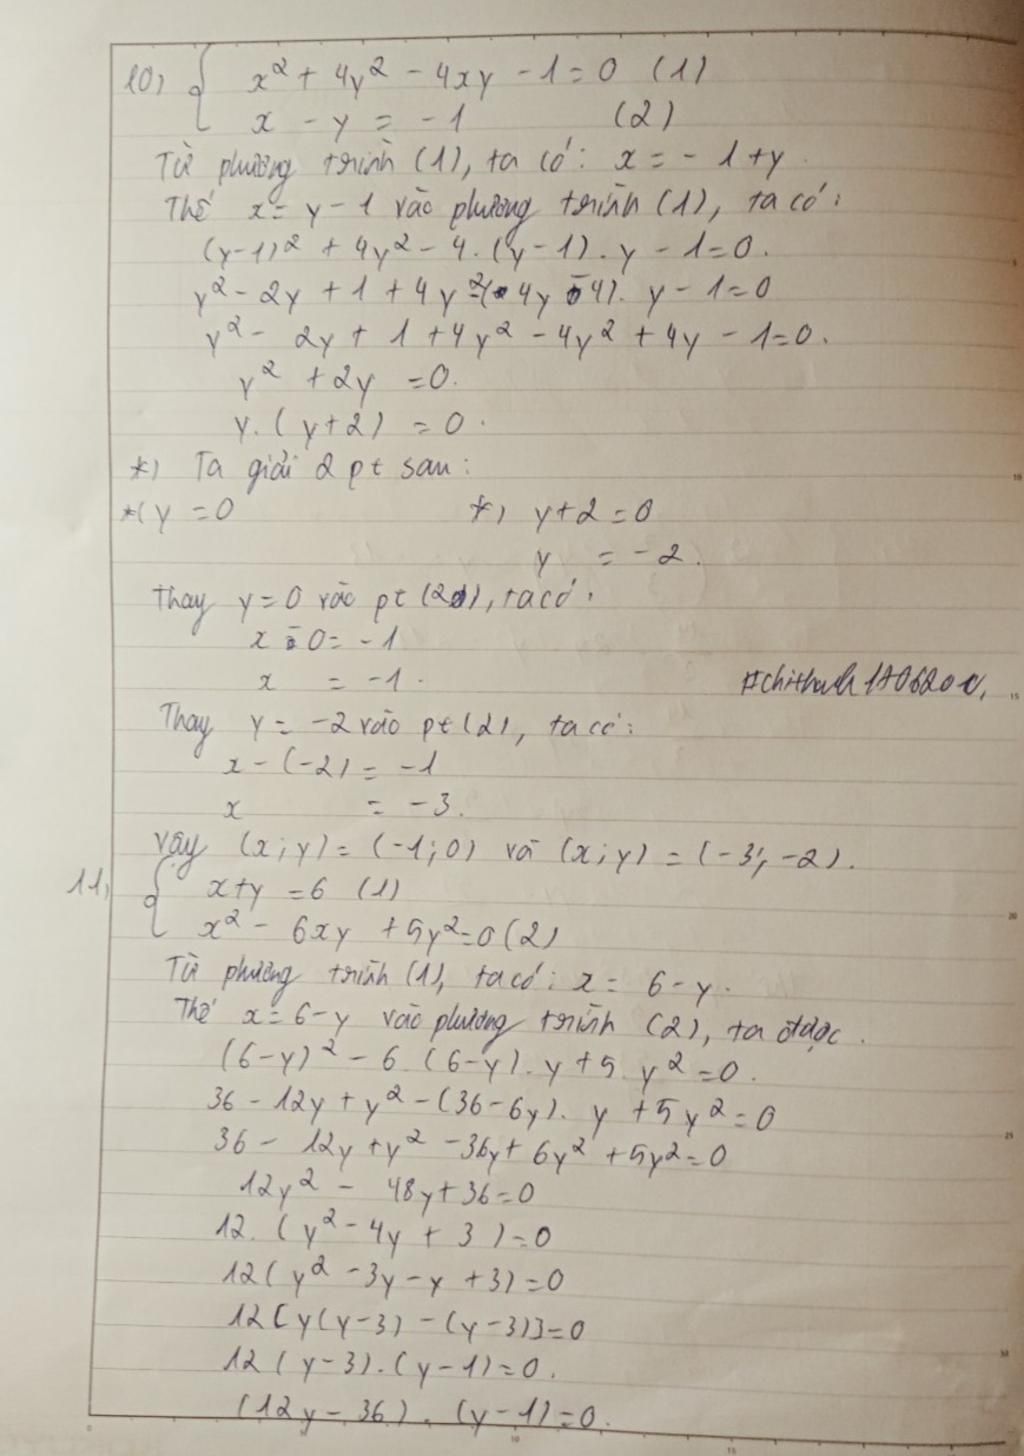 10) { x² + 4y² - 4xy - 1 = 0 (1)
x - y = - 1 (2)
Từ phương trình (1), ta có: x = - 1 + y.
Thế x = y - 1 vào phương trình (1), ta có:
(y-1)² + 4y² - 4.(y-1).y - 1 = 0.
y² - 2y + 1 + 4y² - (4y - 4). y - 1 = 0
y² - 2y + 1 + 4y² - 4y² + 4y - 1 = 0.
y² + 2y = 0.
y.(y+2) = 0.
*) Ta giải 2 pt sau:
*( y = 0 *) y+2 = 0
y = -2.
Thay y = 0 vào pt (2), ta có:
x - 0 = - 1
x = -1.
Thay y = -2 vào pt (2), ta có:
x - (-2) = -1
x = -3.
Vậy (x;y) = (-1;0) và (x;y) = (-3;-2).
11, { x+y = 6 (1)
x² - 6xy + 5y² = 0 (2)
Từ phương trình (1), ta có: x = 6 - y.
Thế x = 6-y vào phương trình (2), ta được.
(6-y)² - 6.(6-y).y + 5.y² = 0.
36 - 12y + y² - (36 - 6y). y + 5y² = 0
36 - 12y + y² - 36y + 6y² + 5y² = 0
12y² - 48y + 36 = 0
12.(y² - 4y + 3) = 0
12(y² - 3y - y + 3) = 0
12[y(y-3) - (y-3)] = 0
12(y-3).(y-1) = 0.
(12y - 36).(y-1) = 0.